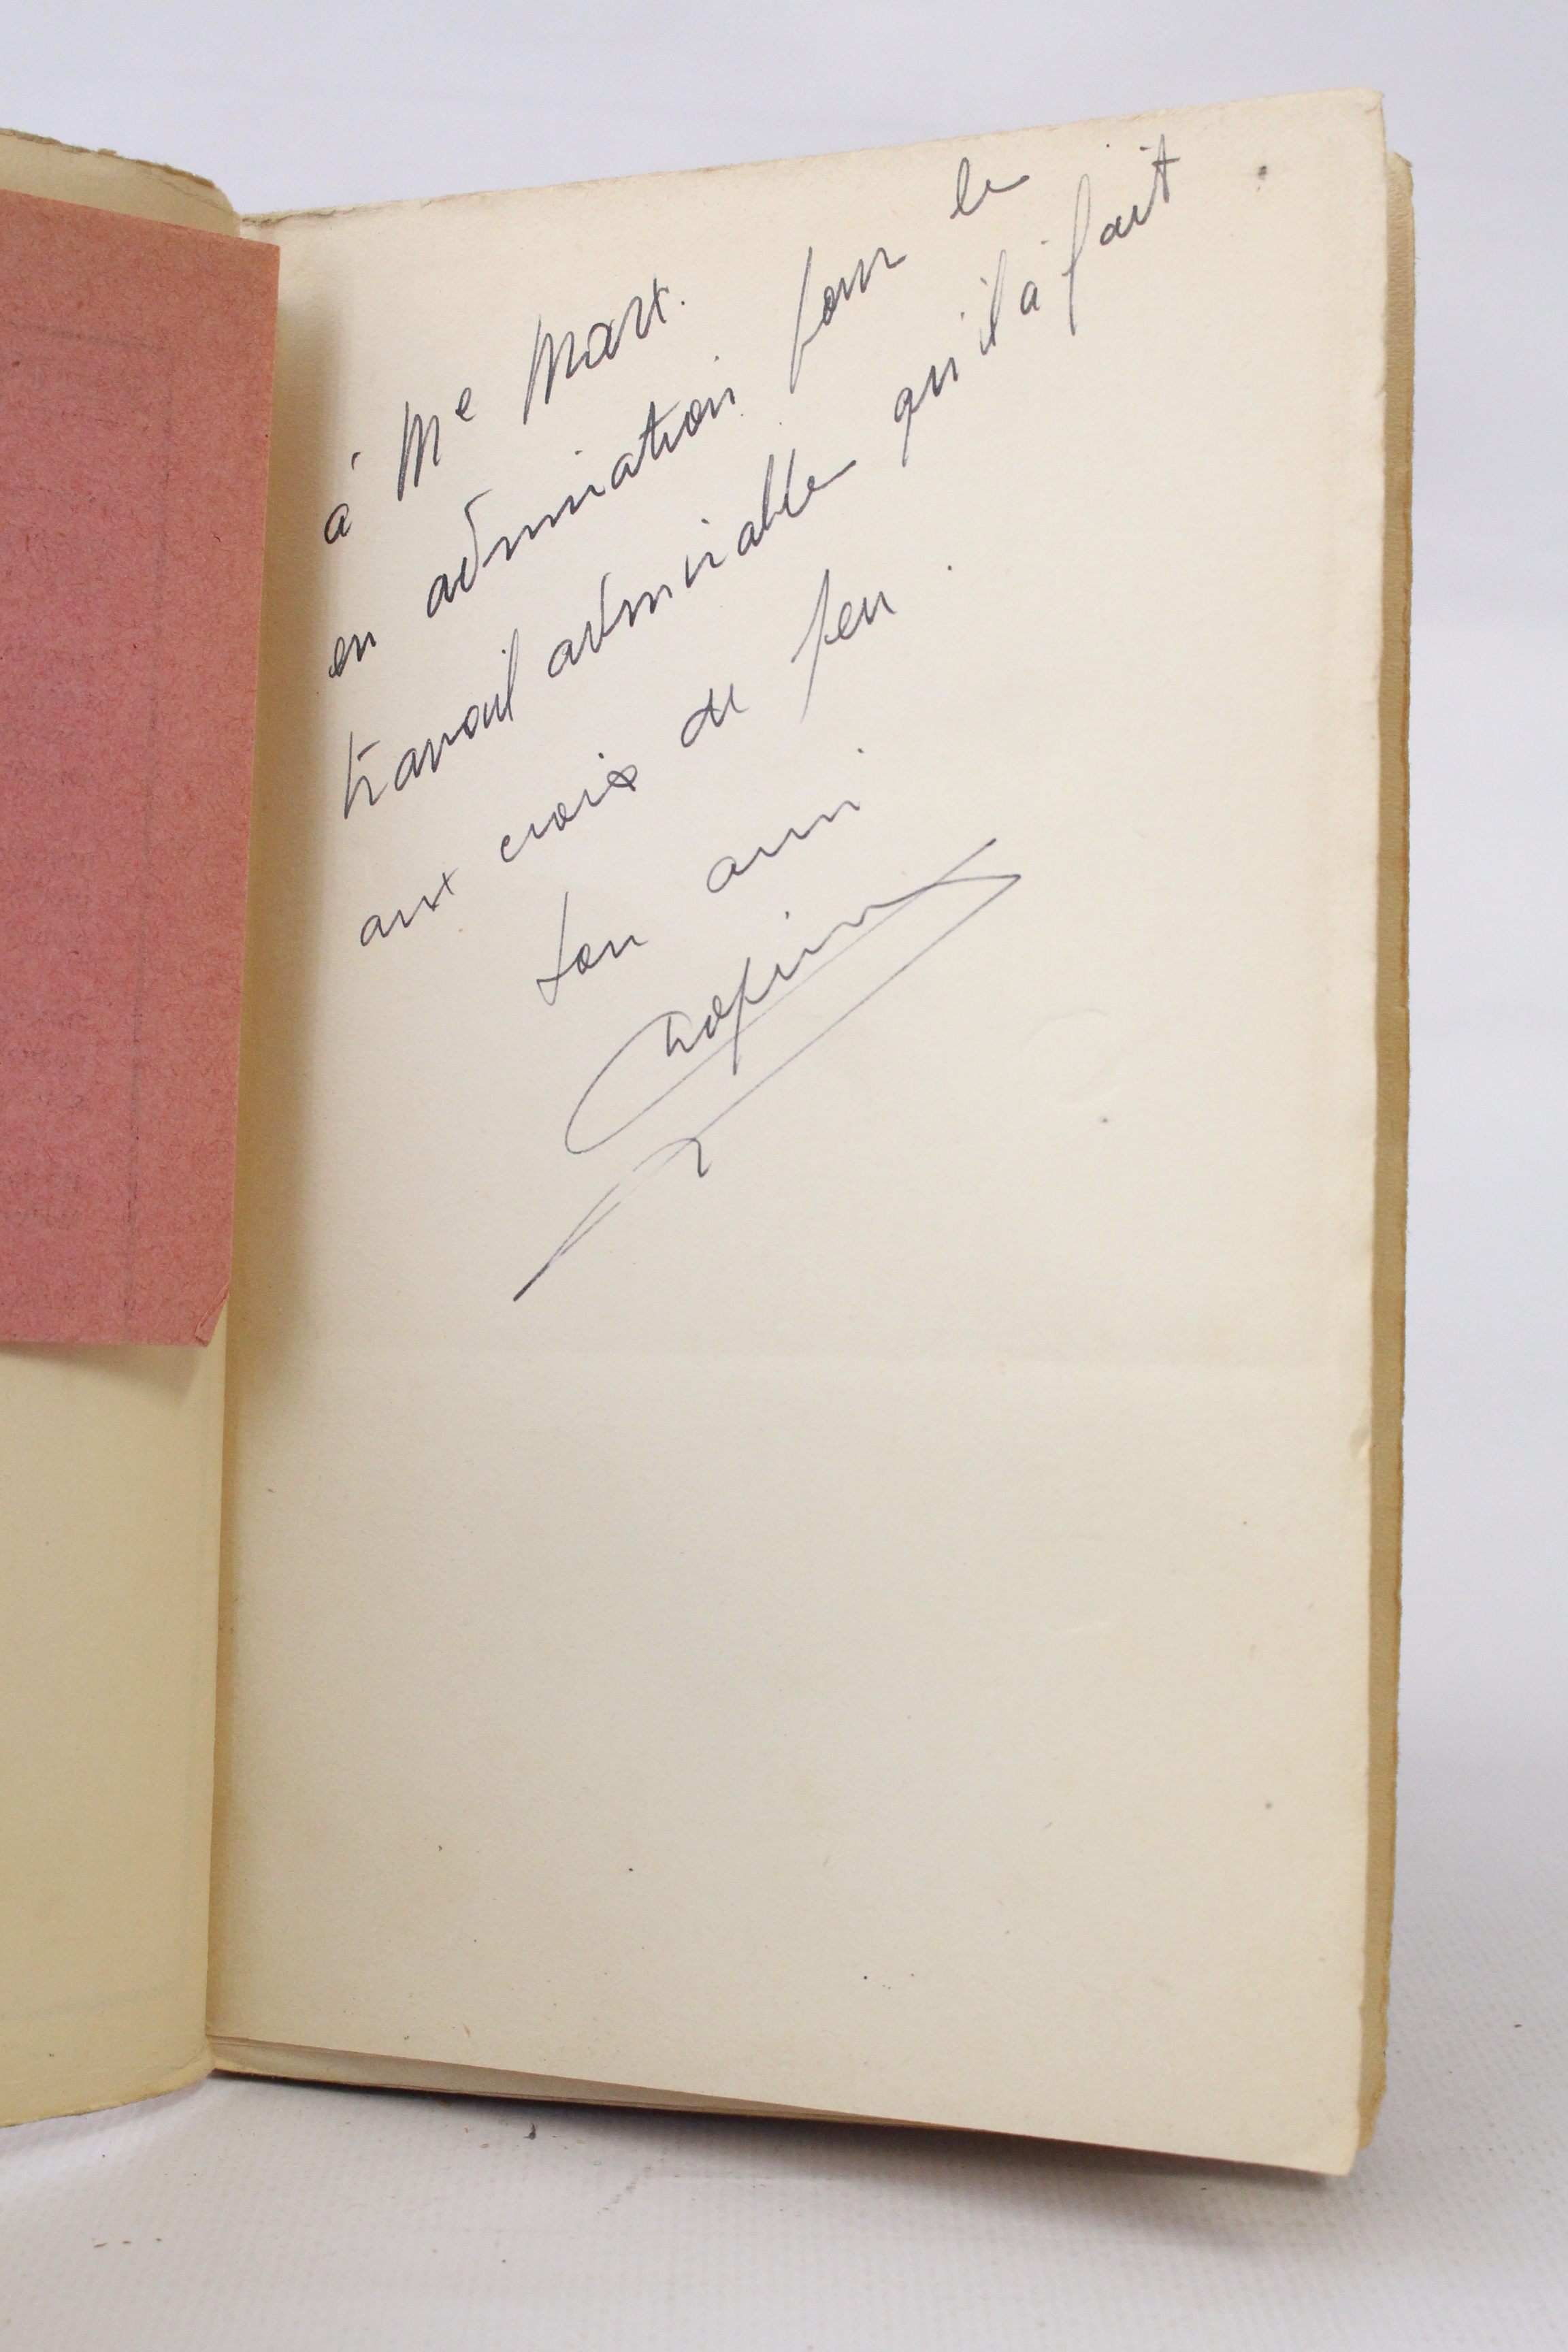 à Me Marx.
en admiration pour le
travail admirable qu'il a fait
aux croix de feu.
Son ami
Chopin